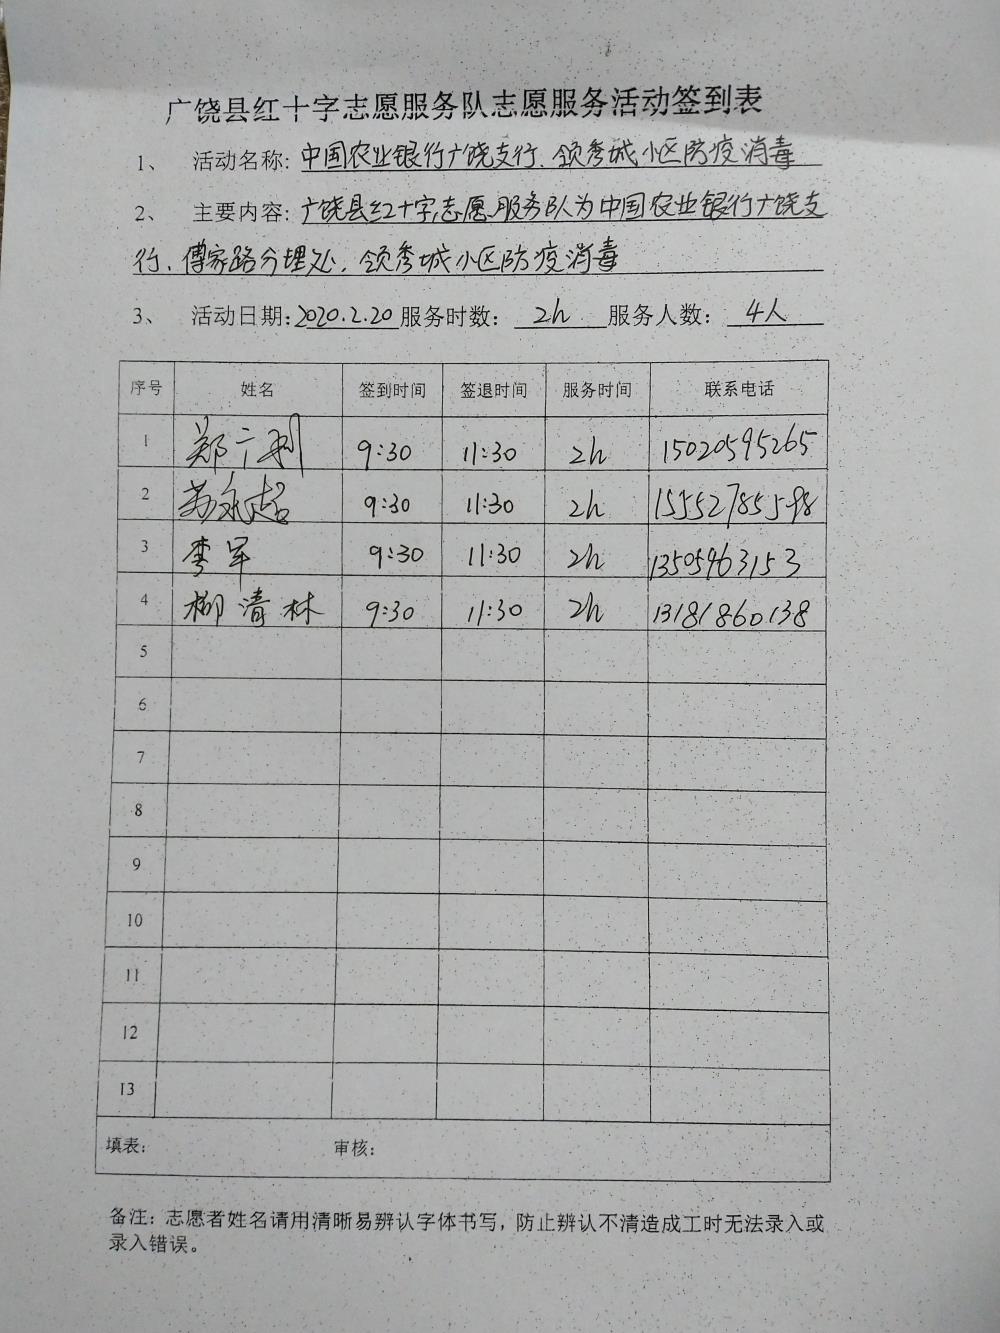 广饶县红十字志愿服务队志愿服务活动签到表
1、 活动名称: 中国农业银行广饶支行、领秀城小区防疫消毒
2、 主要内容: 广饶县红十字志愿服务队为中国农业银行广饶支
行、傅家路分理处、领秀城小区防疫消毒
3、 活动日期: 2020.2.20 服务时数: 2h 服务人数: 4人
序号 姓名 签到时间 签退时间 服务时间 联系电话
1 郑广利 9:30 11:30 2h 15020595265
2 苏永超 9:30 11:30 2h 15552785598
3 李军 9:30 11:30 2h 13505463153
4 柳清林 9:30 11:30 2h 13181860138
5
6
7
8
9
10
11
12
13
填表: 审核:
备注:志愿者姓名请用清晰易辨认字体书写，防止辨认不清造成工时无法录入或
录入错误。